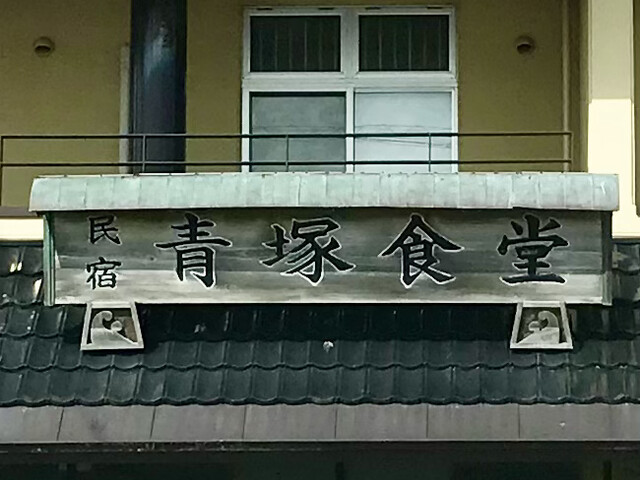 民宿
青塚食堂